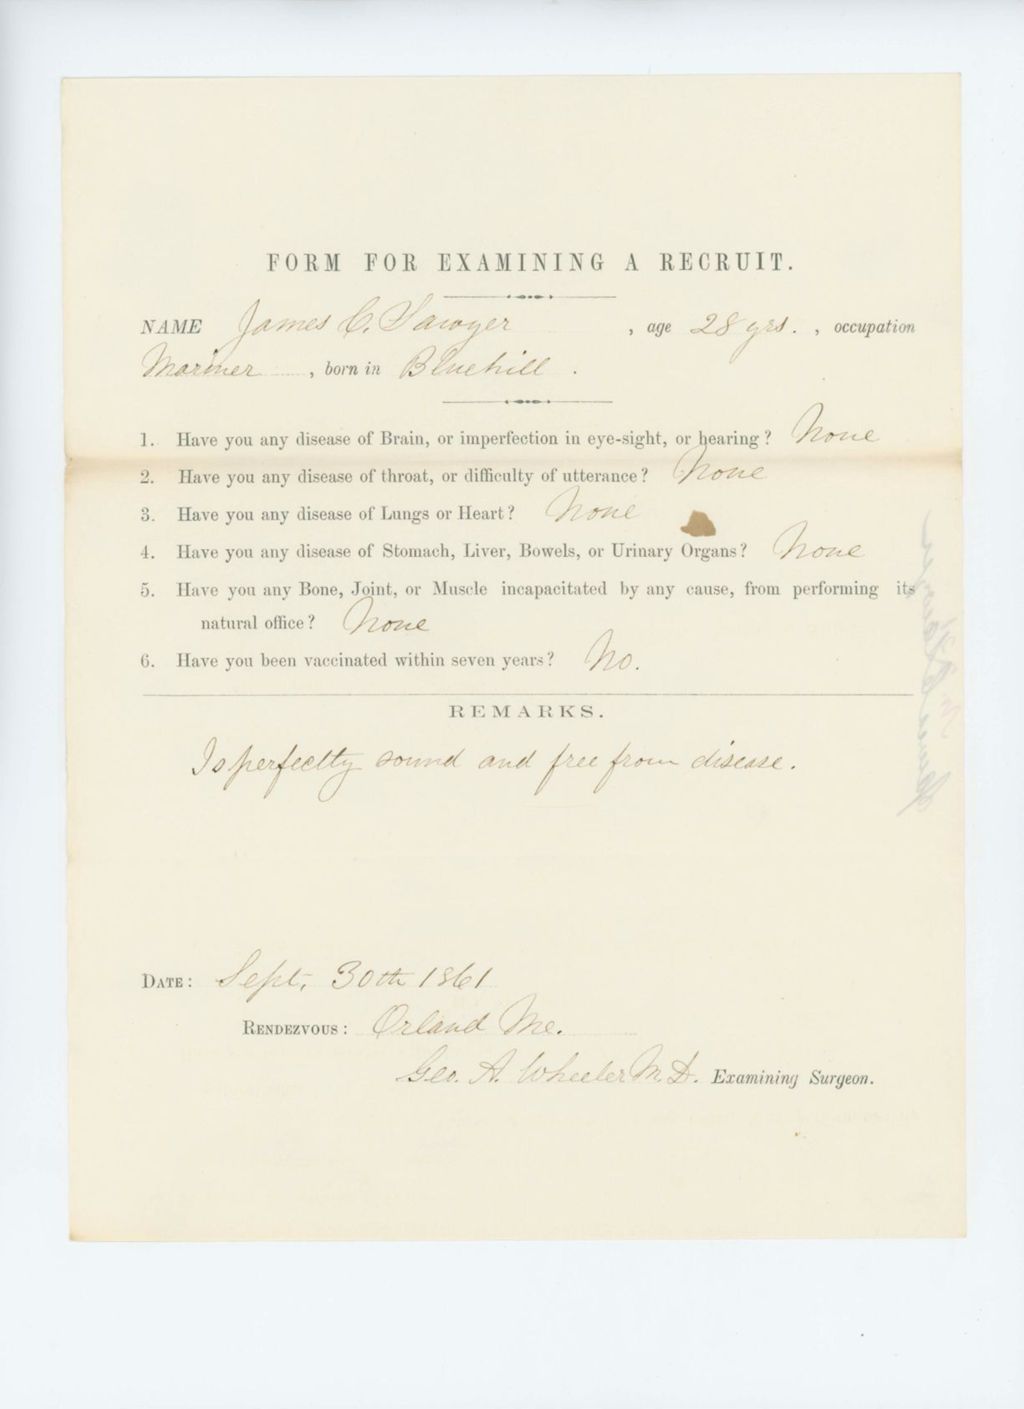 FORM FOR EXAMINING A RECRUIT.
NAME James C. Sawyer , age 28 yrs. , occupation
Mariner , born in Bluehill .
1. Have you any disease of Brain, or imperfection in eye-sight, or hearing? None
2. Have you any disease of throat, or difficulty of utterance? None
3. Have you any disease of Lungs or Heart? None
4. Have you any disease of Stomach, Liver, Bowels, or Urinary Organs? None
5. Have you any Bone, Joint, or Muscle incapacitated by any cause, from performing its
natural office? None
6. Have you been vaccinated within seven years? No.
REMARKS.
Is perfectly sound and free from disease.
DATE: Sept, 30th 1861
RENDEZVOUS: Orland Me.
Geo. A. Wheeler M.D. Examining Surgeon.